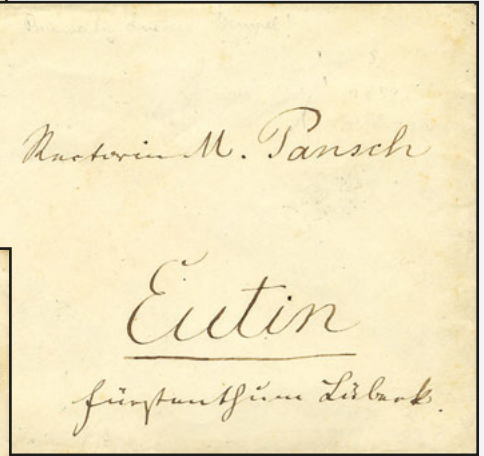 Rectorin M. Pansch
Eutin
Fürstenthum Lübeck.